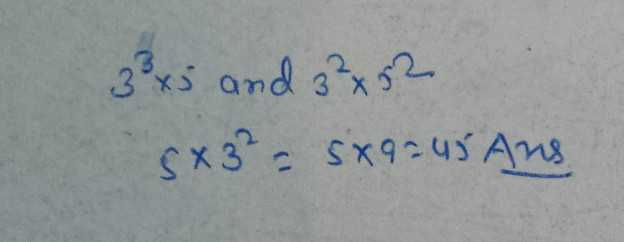 3³×5 and 3²×5²
5×3² = 5×9=45 Ans